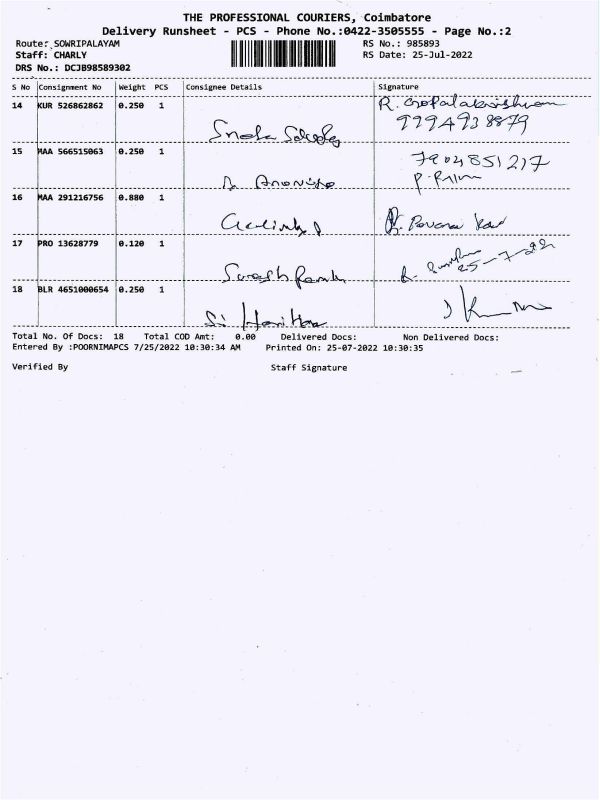 THE PROFESSIONAL COURIERS, Coimbatore
Delivery Runsheet - PCS - Phone No.:0422-3505555 - Page No.:2
Route: SOWRIPALAYAM
RS No.: 985893
Staff: CHARLY
RS Date: 25-Jul-2022
DRS No.: DCJB98589302
S No Consignment No Weight PCS Consignee Details Signature
14 KUR 526862862 0.250 1 R. Gopalakrishnan
9994938879
Sneha
15 MAA 566515063 0.250 1 7904851217
16 MAA 291216756 0.880 1
17 PRO 13628779 0.120 1 25-7-22
Suresh
18 BLR 4651000654 0.250 1
Total No. Of Docs: 18 Total COD Amt: 0.00 Delivered Docs: Non Delivered Docs:
Entered By :POORNIMAPCS 7/25/2022 10:30:34 AM Printed On: 25-07-2022 10:30:35
Verified By Staff Signature